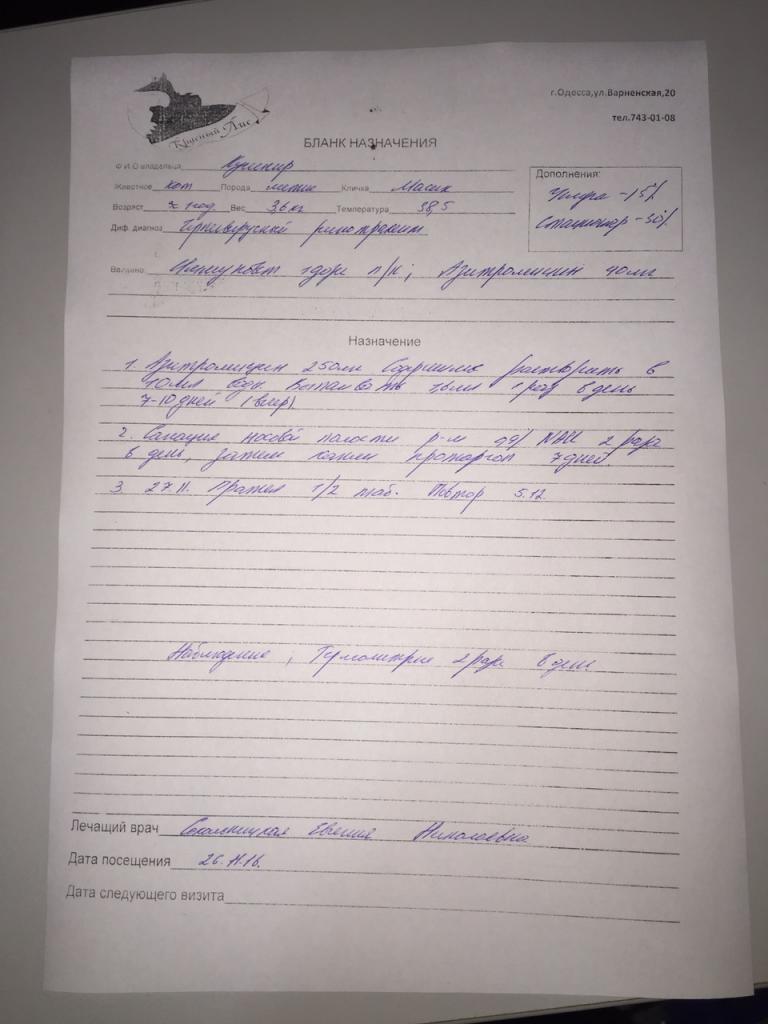 Красный Лис
г.Одесса,ул.Варненская,20
тел.743-01-08
БЛАНК НАЗНАЧЕНИЯ
Ф.И.О владельца Кушнир
Животное кот Порода метис Кличка Масик
Возраст год Вес 3,6 кг Температура 38,5
Диф. диагноз ринотрахеит
Дополнения:
-15%
Стационар -30%
Введено: 1 доза п/к; Азитромицин 40мг
Назначение
1. Азитромицин 250мг Содержимое растворить в
10мл воды Выпаивать 1 раз в день
7-10 дней (вечер).
2. Санация носовой полости р-м 0,9% NaCl 2 раза
в день, затем капли 7 дней.
3. 27.11. Празител 1/2 таб. Повтор 5.12
Наблюдение; Термометрия 2 раза в день
Лечащий врач Сокольницкая Евгения Николаевна
Дата посещения 26.11.16.
Дата следующего визита